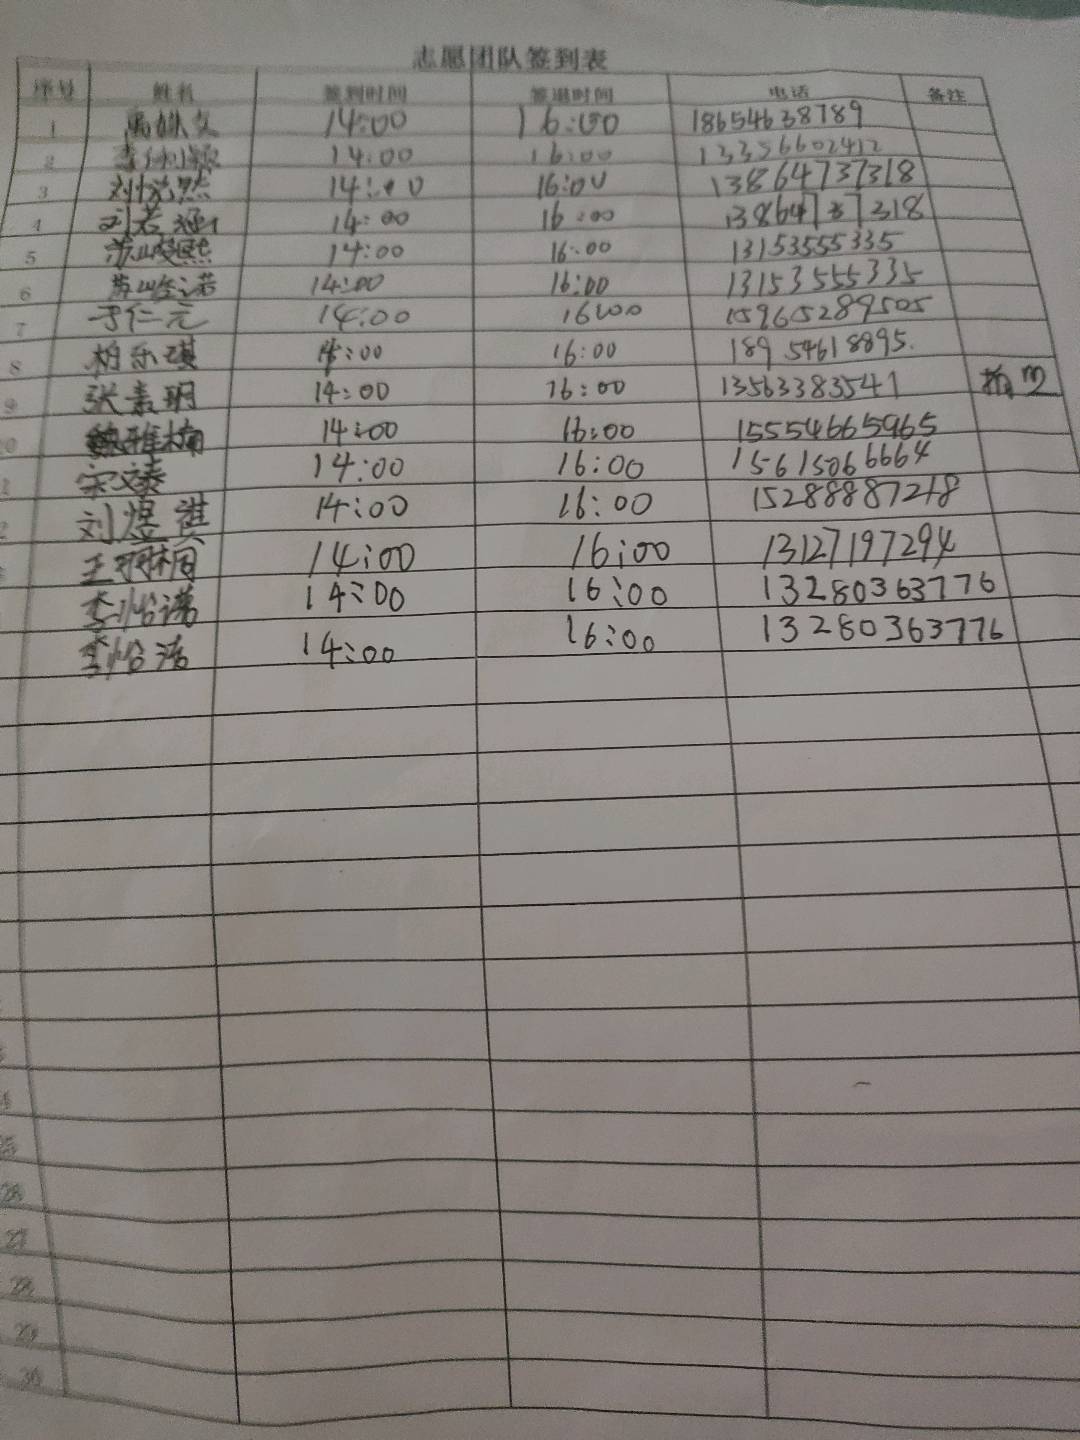 志愿团队签到表
序号 姓名 签到时间 签退时间 电话 备注
1 14:00 16:00 18654638789
2 14:00 16:00 13356602412
3 刘悦然 14:00 16:00 13864737318
4 刘若涵 14:00 16:00 13864737318
5 14:00 16:00 13153555335
6 14:00 16:00 13153555335
7 于仁元 14:00 16:00 15965289505
8 柏乐琪 14:00 16:00 18954618895.
9 张素玥 14:00 16:00 13563383541
0 魏雅楠 14:00 16:00 15554665965
1 宋文泰 14:00 16:00 15615066664
2 刘煜祺 14:00 16:00 15288887218
王玥桐 14:00 16:00 13127197294
李怡诺 14:00 16:00 13280363776
李怡洁 14:00 16:00 13280363776
26
27
28
29
30